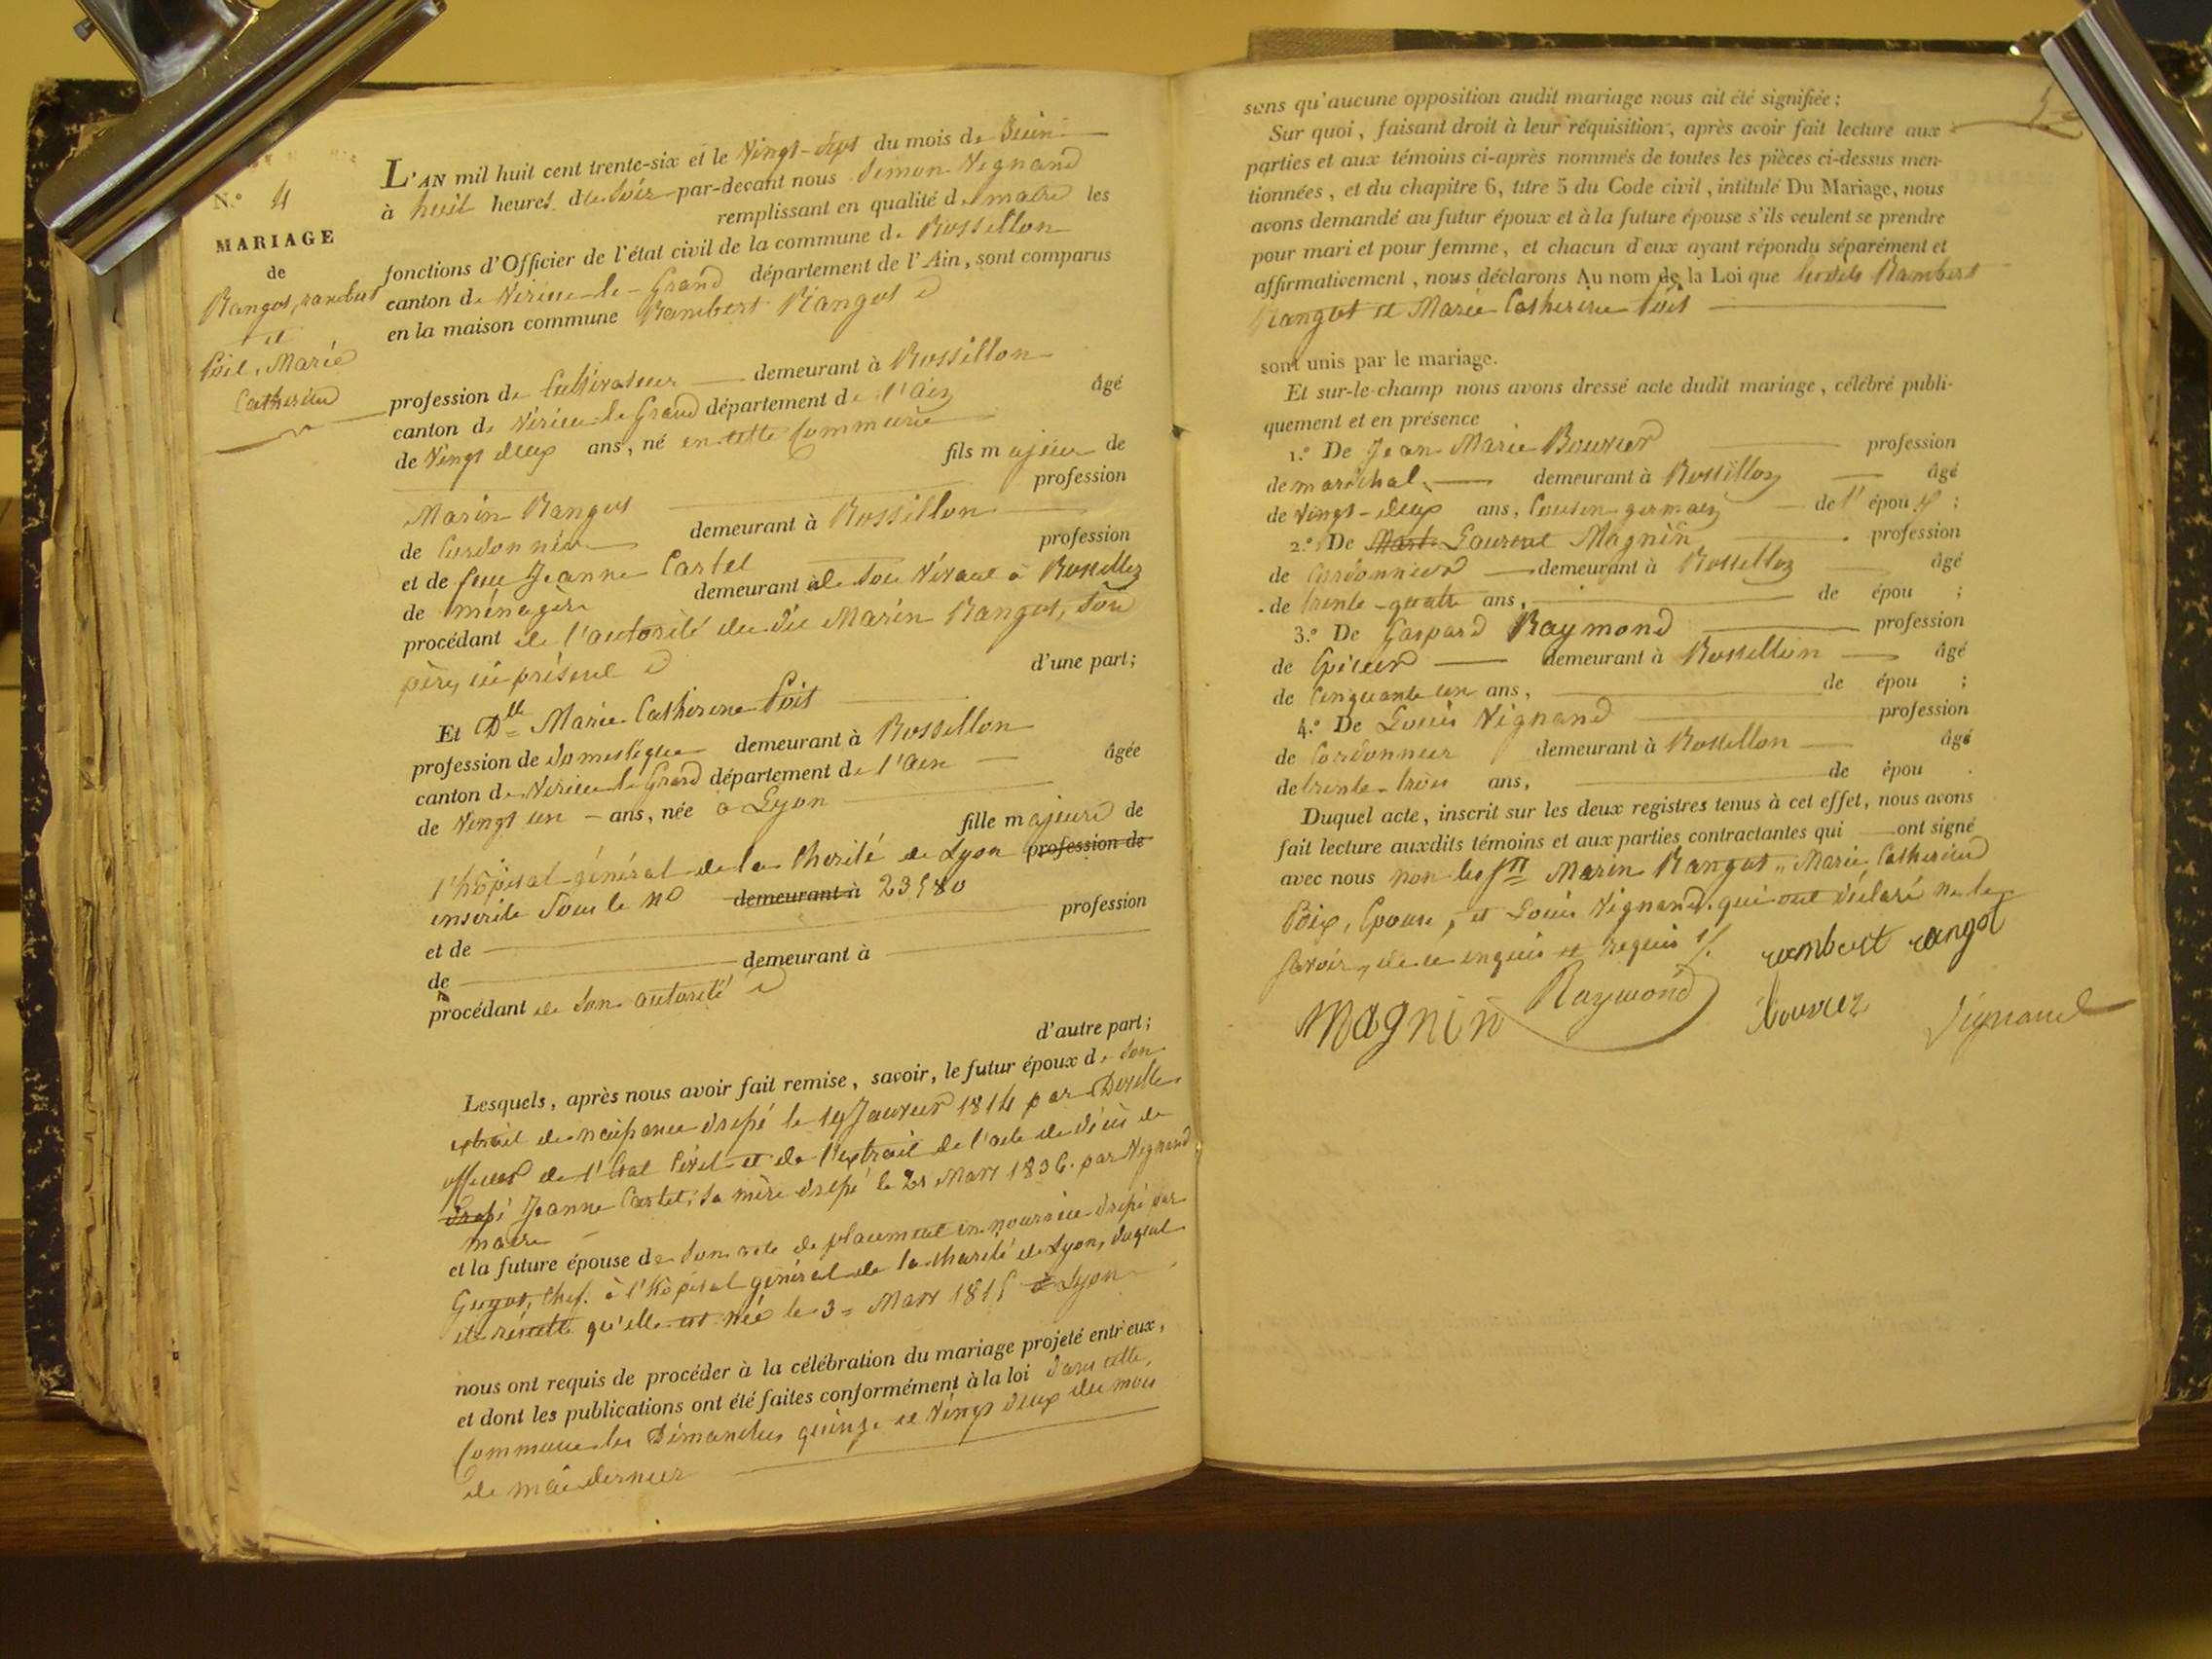 N.º 4
MARIAGE
de
Rangot, rambert
et
Poit, Marie
Catherine
L'AN mil huit cent trente-six et le Vingt-Sept du mois de Juin
à huit heures du Soir par-devant nous Simon Vignand
remplissant en qualité de maire les
fonctions d'Officier de l'état civil de la commune de Rossillon
canton de Virieu-le-Grand département de l'Ain, sont comparus
en la maison commune Rambert Rangot
profession de Cultivateur demeurant à Rossillon
canton de Virieu le Grand département de l'Ain âgé
de Vingt deux ans, né en cette Commune
fils majeur de
Marin Rangot profession
de Cordonnier demeurant à Rossillon
et de feue Jeanne Castel profession
de ménagère demeurant de Son Vivant à Rossillon
procédant de l'autorité du dit Marin Rangot, Son
père, ici présent d'une part;
Et Dlle Marie Catherine Poit
profession de domestique demeurant à Rossillon
canton de Virieu le Grand département de l'Ain âgée
de Vingt un ans, née à Lyon
fille majeure de
l'hôpital général de la Charité de Lyon profession de
inscrite Sous le no demeurant à 23580
et de profession
de demeurant à
procédant de Son autorité
d'autre part;
Lesquels, après nous avoir fait remise, savoir, le futur époux de Son
extrait de naissance dressé le 19 Janvier 1814 par
officier de l'Etat Civil et de l'extrait de l'acte de décès de
dressé Jeanne Castel, Sa mère dressé le 21 Mars 1836. par Vignand
maire
et la future épouse de Son acte de placement en nourrice dressé par
Guyot, Chef. à l'Hôpital général de la Charité de Lyon, duquel
il résulte qu'elle est née le 3 Mars 1815 à Lyon
nous ont requis de procéder à la célébration du mariage projeté entr'eux,
et dont les publications ont été faites conformément à la loi dans cette
Commune les Dimanches quinze et Vingt deux du mois
de mai dernier
sans qu'aucune opposition audit mariage nous ait été signifiée;
Sur quoi, faisant droit à leur réquisition, après avoir fait lecture aux
parties et aux témoins ci-après nommés de toutes les pièces ci-dessus men-
tionnées, et du chapitre 6, titre 5 du Code civil, intitulé Du Mariage, nous
avons demandé au futur époux et à la future épouse s'ils veulent se prendre
pour mari et pour femme, et chacun d'eux ayant répondu séparément et
affirmativement, nous déclarons Au nom de la Loi que lesdits Rambert
Rangot et Marie Catherine Poit
sont unis par le mariage.
Et sur-le-champ nous avons dressé acte dudit mariage, célébré publi-
quement et en présence
1.º De Jean Marie Bouvier profession
de maréchal demeurant à Rossillon âgé
de Vingt-deux ans, Cousin germain de l'époux;
2.º De Laurent Magnin profession
de Cordonnier demeurant à Rossillon âgé
de trente-quatre ans, de épou ;
3.º De Gaspard Raymond profession
de Epicier demeurant à Rossillon âgé
de Cinquante un ans, de épou ;
4.º De Louis Vignand profession
de Cordonnier demeurant à Rossillon âgé
de trente-trois ans, de épou .
Duquel acte, inscrit sur les deux registres tenus à cet effet, nous avons
fait lecture auxdits témoins et aux parties contractantes qui ont signé
avec nous non les Srs Marin Rangot, Marie Catherine
Poix, Epouse, et Louis Vignand. qui ont déclaré ne le
Savoir, de ce enquis et requis
rambert rangot
Magnin Raymond Bouvier Vignand